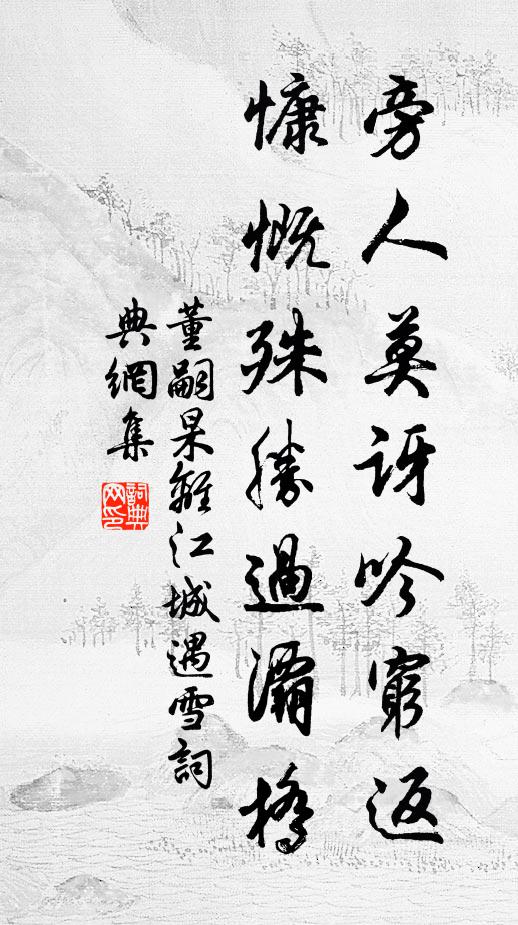 旁人莫訝吟窮返
慷慨殊勝過灞橋
董嗣杲離江城遇雪詞
典網集
詞典
网印